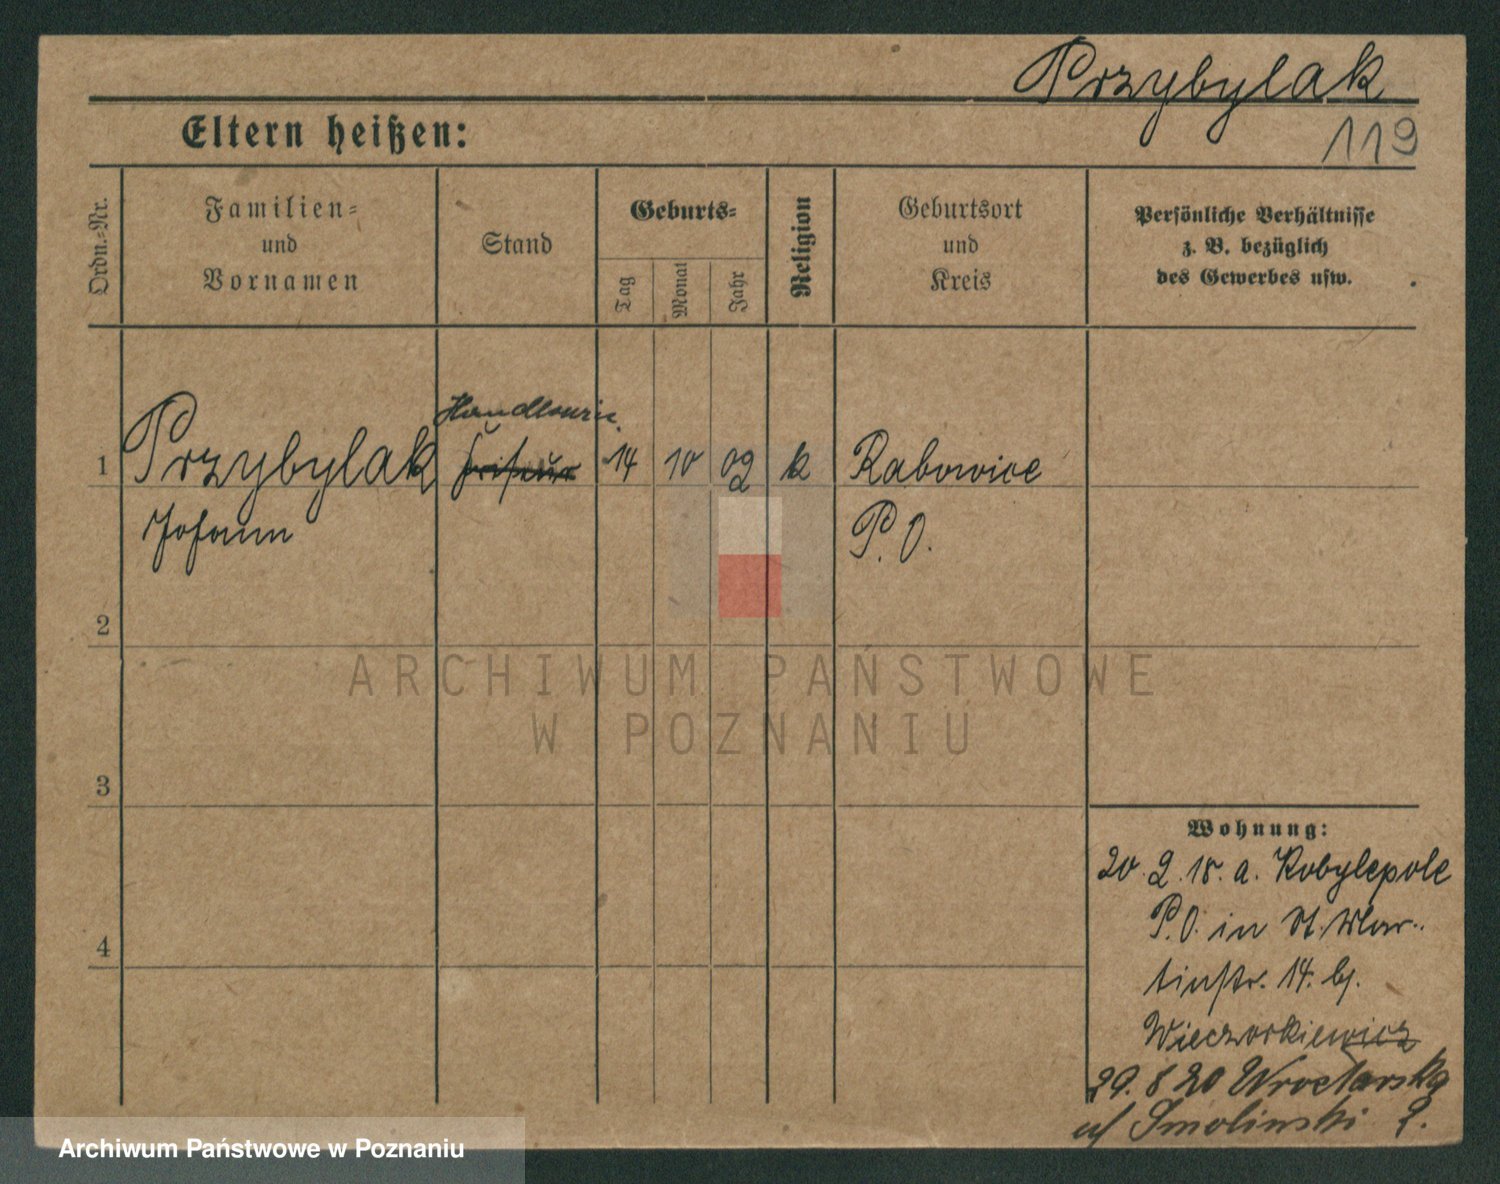 Przybylak
119
Eltern heißen:
Ordn.-Nr.
Familien-
und
Vornamen
Stand
Geburts-
Tag
Monat
Jahr
Religion
Geburtsort
und
Kreis
Persönliche Verhältnisse
z. B. bezüglich
des Gewerbes usw.
1 Przybylak Friseur 14 10 02 k Rabowice
Johann P. O.
2
ARCHIWUM PAŃSTWOWE
W POZNANIU
3
4
Wohnung:
20. 2. 18. a. Kobylepole
P. O. in St. Mar-
tinstr. 14. bj.
Wieczorkiewicz
29. 8 20 Wrocławska
u/ Smolinski 2.
Archiwum Państwowe w Poznaniu